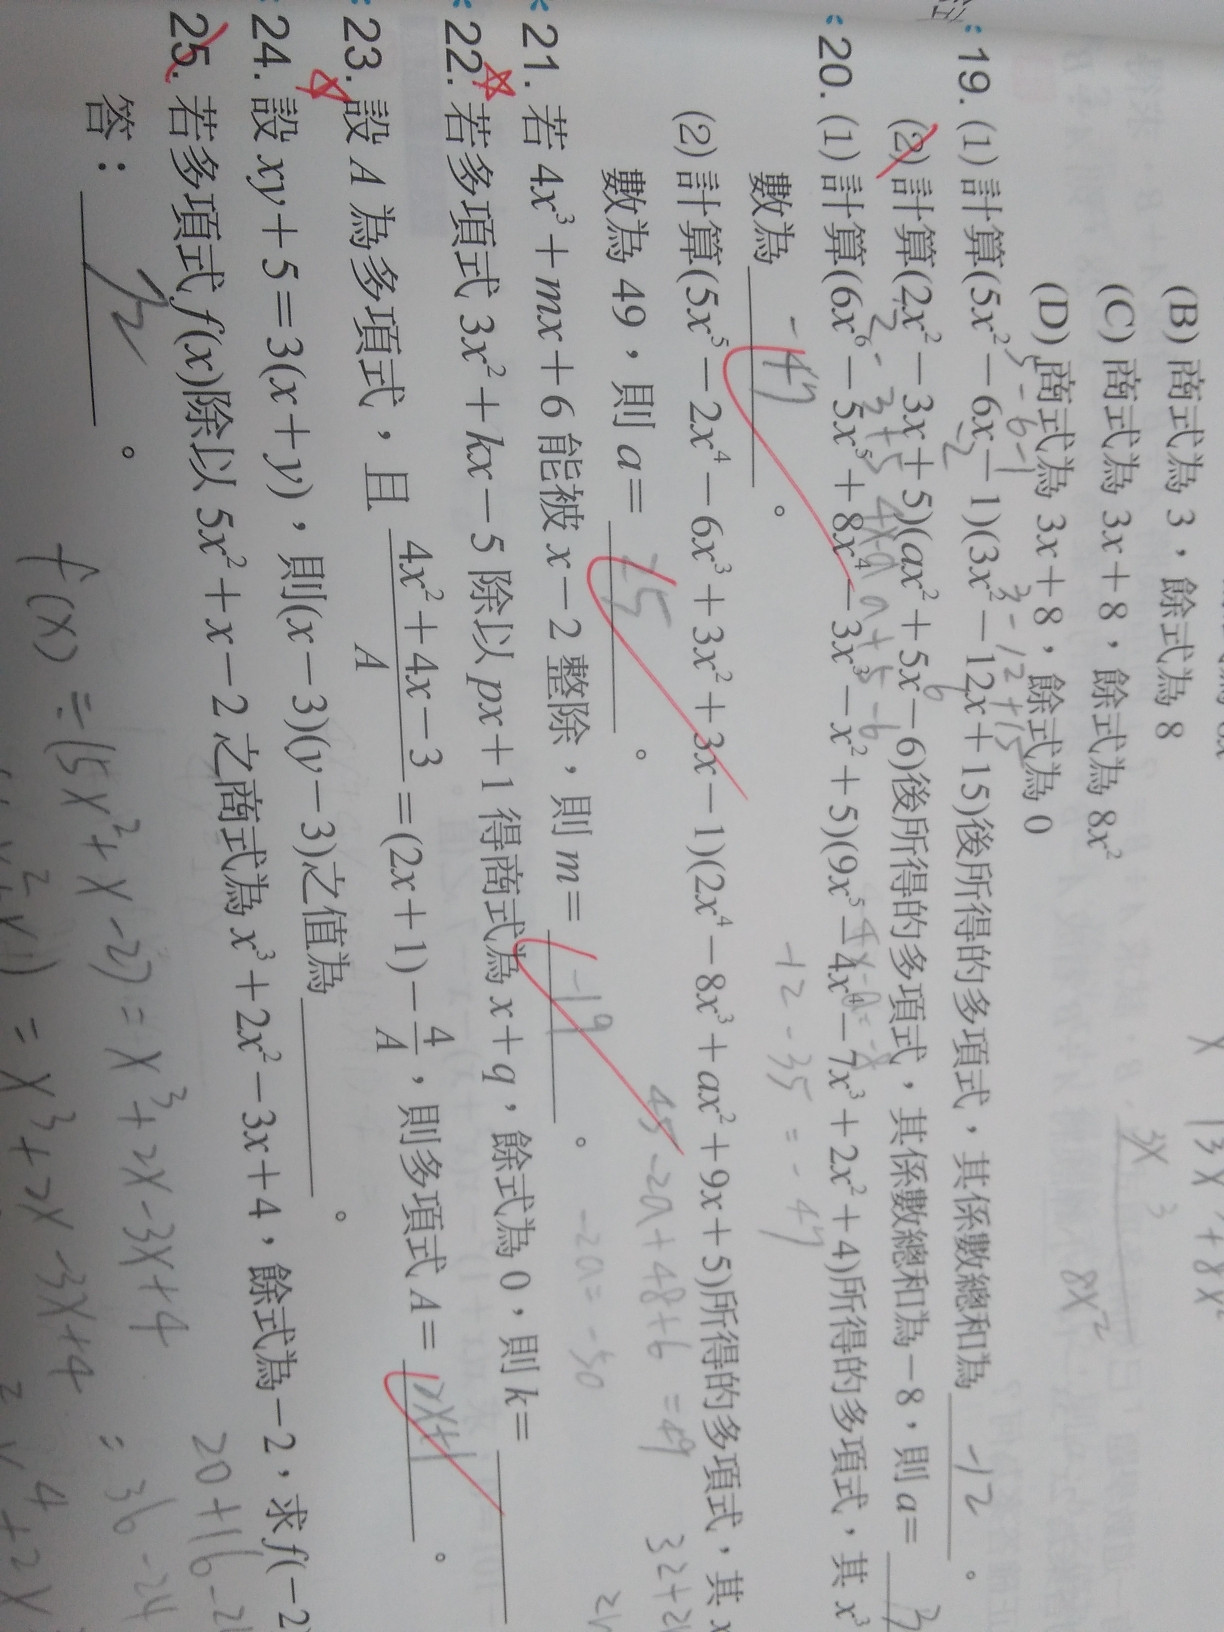 (B) 商式為 3，餘式為 8
(C) 商式為 3x＋8，餘式為 8x²
(D) 商式為 3x＋8，餘式為 0
19. (1) 計算(5x²－6x－1)(3x²－12x＋15)後所得的多項式，其係數總和為 -12 。
5-6-1
-2
3-12+15
6
(2) 計算(2x²－3x＋5)(ax²＋5x－6)後所得的多項式，其係數總和為－8，則 a＝
2-3+5
4×a
a+5-6
20. (1) 計算(6x⁶－5x⁵＋8x⁴－3x³－x²＋5)(9x⁵－4x⁴－7x³＋2x²＋4)所得的多項式，其 x³
數為 -47 。
-12-35=-47
(2) 計算(5x⁵－2x⁴－6x³＋3x²＋3x－1)(2x⁴－8x³＋ax²＋9x＋5)所得的多項式，其 x
數為 49，則 a＝ 25 。
45-2a+48+6=49
-2a=-50
21. 若 4x³＋mx＋6 能被 x－2 整除，則 m＝ -19 。
22. 若多項式 3x²＋kx－5 除以 px＋1 得商式為 x＋q，餘式為 0，則 k＝
23. 設 A 為多項式，且 4x²＋4x－3/A＝(2x＋1)－4/A，則多項式 A＝ 2x+1 。
24. 設 xy＋5＝3(x＋y)，則(x－3)(y－3)之值為 。
25. 若多項式 f(x)除以 5x²＋x－2 之商式為 x³＋2x²－3x＋4，餘式為－2，求 f(－2)
答： 。
20+16-2
f(x)=(5x²+x-2)=x³+2x-3x+4
=36-24
=x³+2x-3x+4